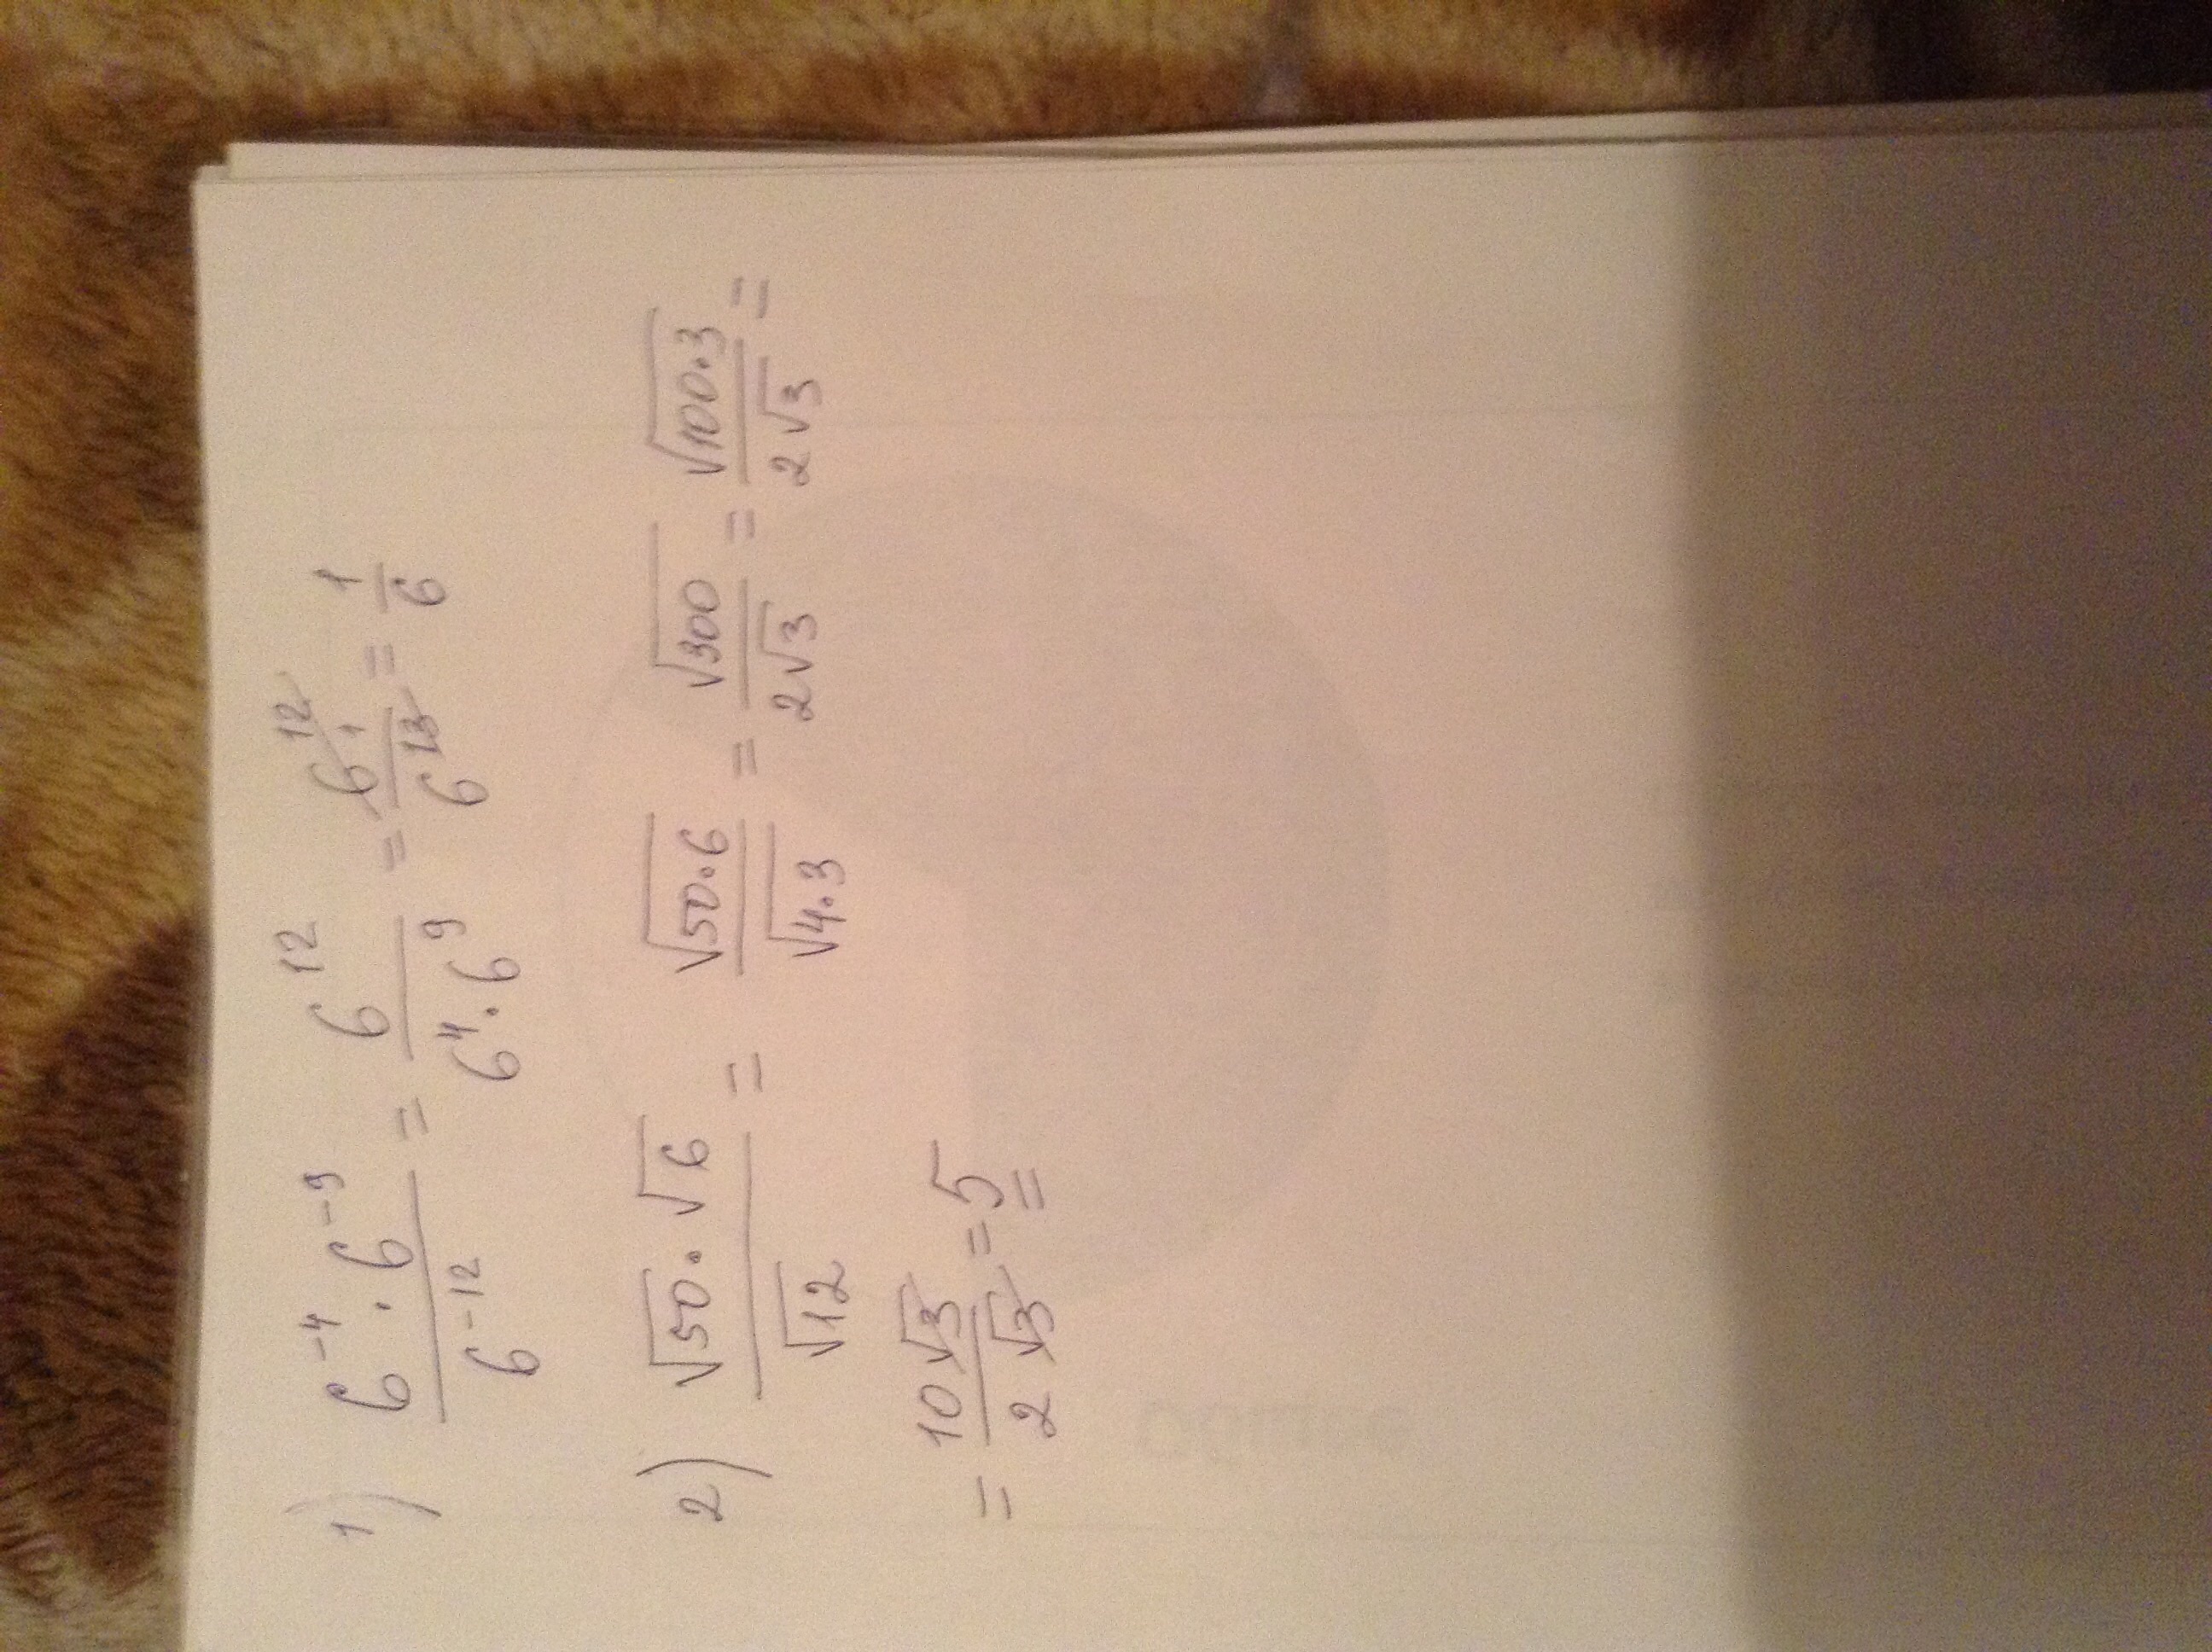 1) \frac{6^{-4} \cdot 6^{-9}}{6^{-12}} = \frac{6^{12}}{6^4 \cdot 6^9} = \frac{6^{12} 1}{6^{13}} = \frac{1}{6}
2) \frac{\sqrt{50} \cdot \sqrt{6}}{\sqrt{12}} = \frac{\sqrt{50 \cdot 6}}{\sqrt{4 \cdot 3}} = \frac{\sqrt{300}}{2\sqrt{3}} = \frac{\sqrt{100 \cdot 3}}{2\sqrt{3}} =
= \frac{10\sqrt{3}}{2\sqrt{3}} = 5